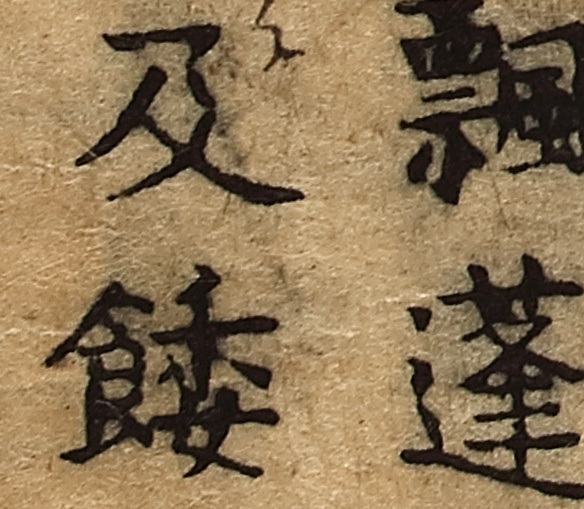 飄蓬
及餧